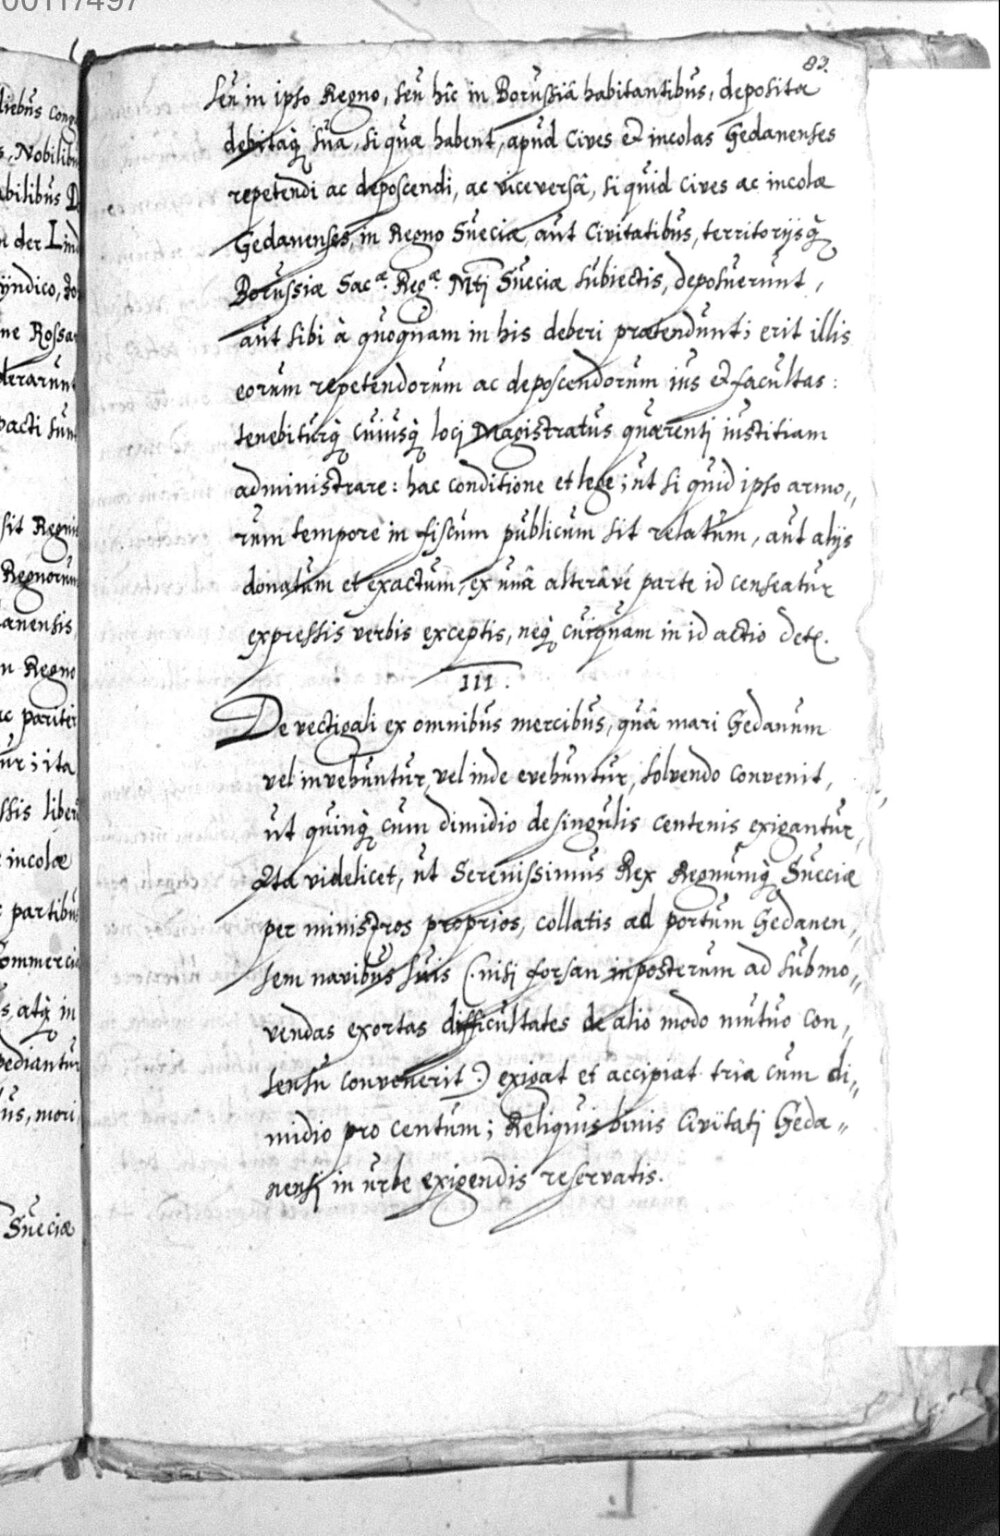 00117497
82.
seu in ipso Regno, seu hîc in Borussiâ habitantibus, deposita
debitaq; sua, si quæ habent, apud Cives et incolas Gedanenses
repetendi ac deposcendi, ac viceversâ, si quid Cives ac incolæ
Gedanenses, in Regno Sueciæ, aut Civitatibus, territorijsq;
Borussiæ Sac.æ Reg.æ Mti Sueciæ subiectis, deposuerunt,
aut sibi à quoquam in his deberi prætendunt; erit illis
eorum repetendorum ac deposcendorum ius et facultas:
tenebiturq; cuiusq; loci Magistratus quærenti iustitiam
administrare: hac conditione et lege; ut si quid ipso armo„
rum tempore in fiscum publicum sit relatum, aut alijs
donatum et exactum, ex unâ alterâve parte id censeatur
expressis verbis exceptis, neq; cuiquam in id actio detr.
III.
De vectigali ex omnibus mercibus, quâ mari Gedanum
vel invehuntur, vel inde evehuntur, solvendo convenit,
ut quinq; cum dimidio de singulis centenis exigantur,
Ita videlicet, ut Serenissimus Rex Regnumq; Sueciæ
per ministros proprios, collatis ad portum Gedanen„
sem navibus suis (: nisi forsan inposterum ad submo„
vendas exortas difficultates de alio modo mutuo con„
sensu convenerit :) exigat et accipiat tria cum di„
midio pro centum; Reliquis binis Civitati Geda„
nensi in urbe exigendis reservatis.